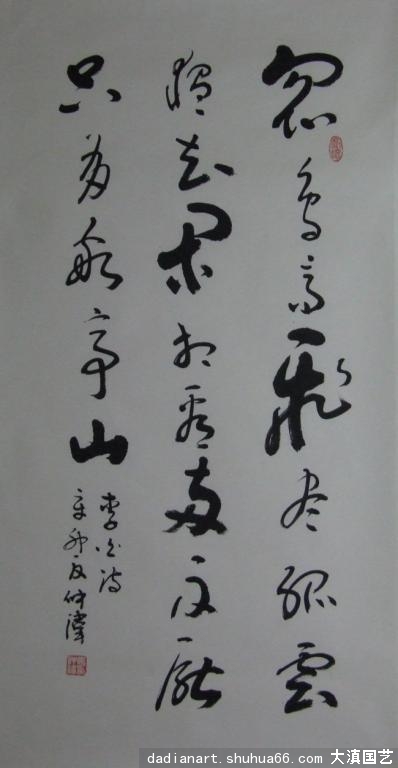 眾鳥高飛尽孤雲
獨去閑相看兩不厭
只有敬亭山
李白诗
辛卯夏仲
dadianart.shuhua66.com 大滇国艺